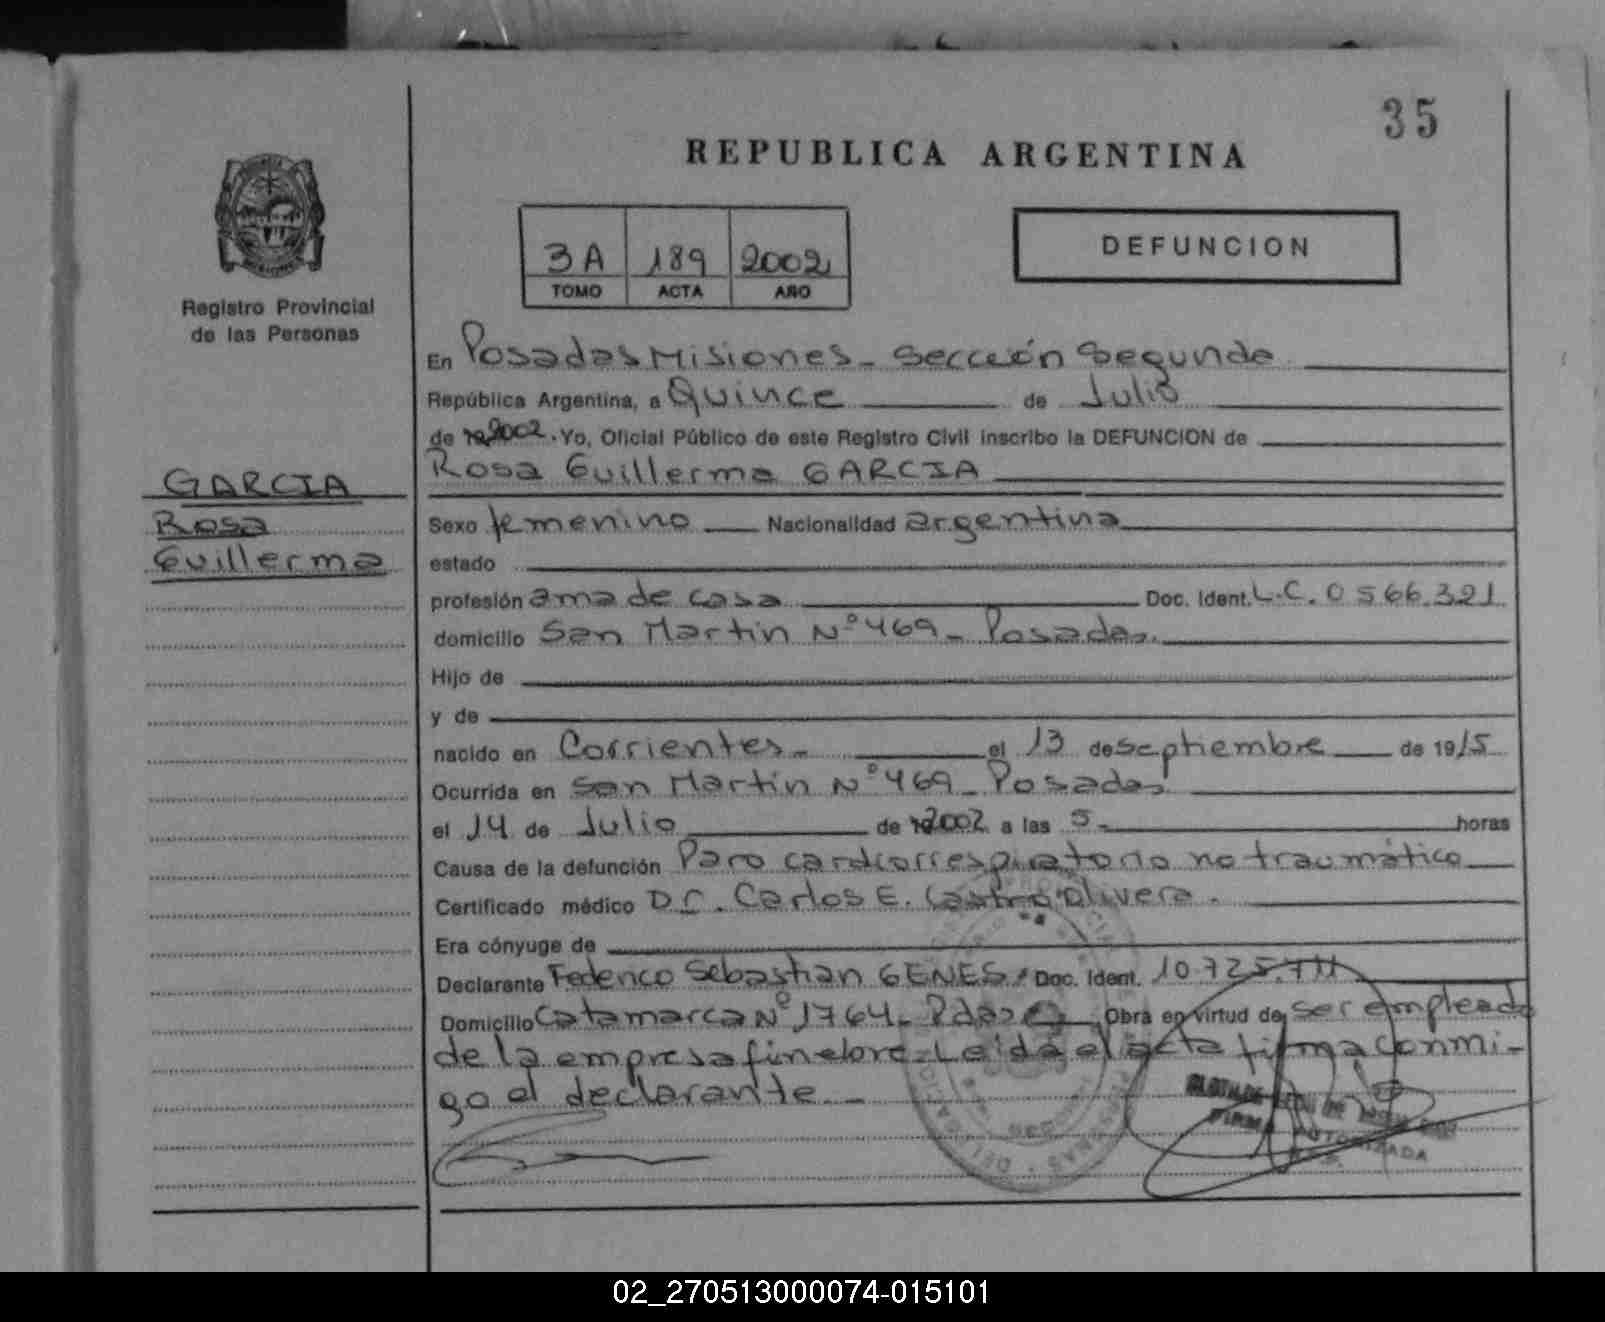 35
REPUBLICA ARGENTINA
3A 189 2002
TOMO ACTA AÑO
DEFUNCION
Registro Provincial
de las Personas
En Posadas Misiones - Sección Segunda
República Argentina, a Quince de Julio
de 2002. Yo, Oficial Público de este Registro Civil inscribo la DEFUNCION de
Rosa Guillerma GARCIA
GARCIA
Rosa
Guillerma
Sexo femenino Nacionalidad argentina
estado
profesión ama de casa Doc. Ident. L.C. 0566.321
domicilio San Martin Nº 469 - Posadas.
Hijo de
y de
nacido en Corrientes - el 13 de septiembre de 1915
Ocurrida en San Martín Nº 469 - Posadas
el 14 de Julio de 2002 a las 5- horas
Causa de la defunción Paro cardiorrespiratorio no traumático
Certificado médico Dr. Carlos E. Castro Olivera.
Era cónyuge de
Declarante Federico Sebastian GENES. Doc. Ident. 10.725.711
Domicilio Catamarca Nº 1764 - Pdas Obra en virtud de ser empleado
de la empresa fúnebre - Leída el acta firma conmi-
go el declarante. -
FIRMA AUTORIZADA
02_270513000074-015101